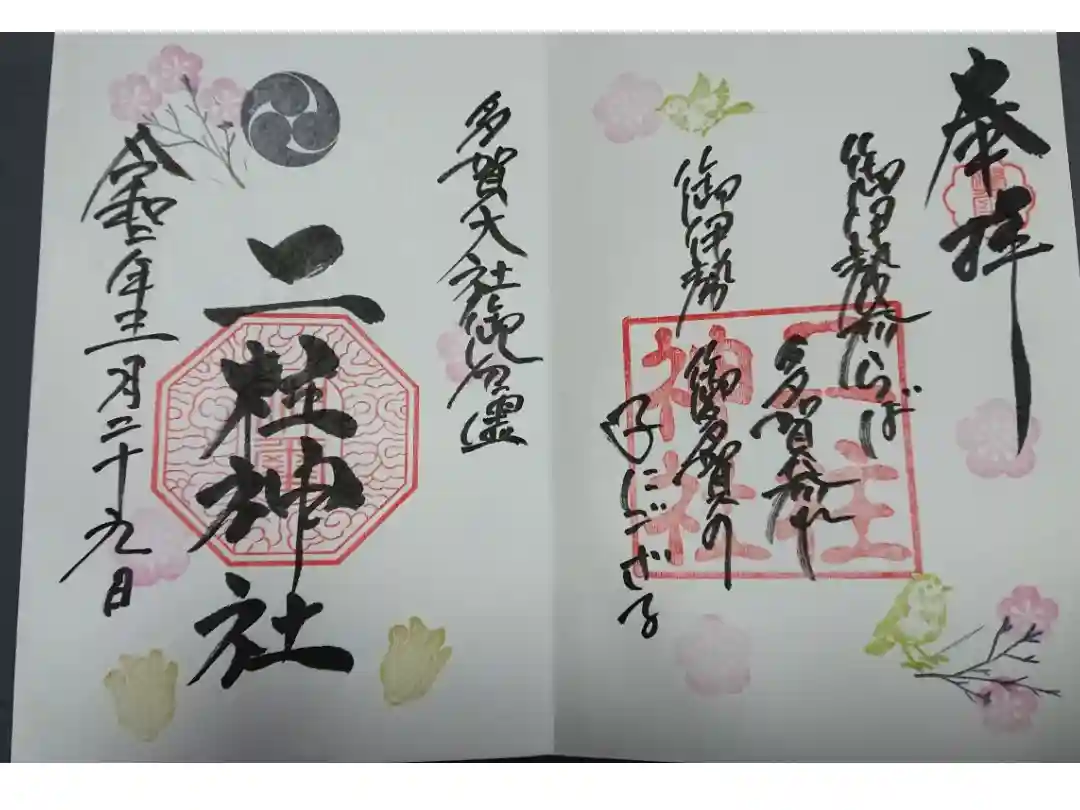 奉拝
御伊勢参らば
多賀参れ
御伊勢
御多賀の
子にござる
二柱
神社
多賀大社御分霊
二柱神社
令和二年三月二十九日